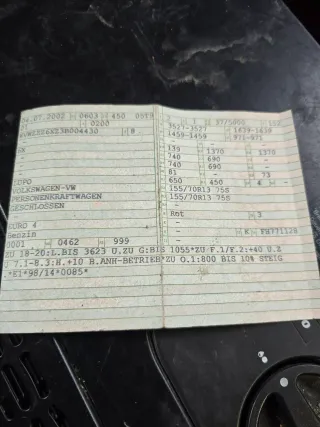 04.07.2002 0603 450
0200
6X
-
-
-
LUPO
VOLKSWAGEN-VW
PERSONENKRAFTWAGEN
GESCHLOSSEN
-
EURO 4
Benzin
0001 0462 999
1 37/5000 102
3527-3527 1639-1639
1459-1459 971-971
-
139 1370 1370
740 690 -
740 690 -
81 - 73
650 450 4 -
155/70R13 75S
155/70R13 75S
-
-
Rot 3
-
- K FH771128
-
ZU 18-20:L.BIS 3623 U.ZU G:BIS 1055*ZU F.1/F.2:+40 U.Z
U 7.1-8.3:H.+10 B.ANH-BETRIEB*ZU O.1:800 BIS 10% STEIG
.*E1*98/14*0085*